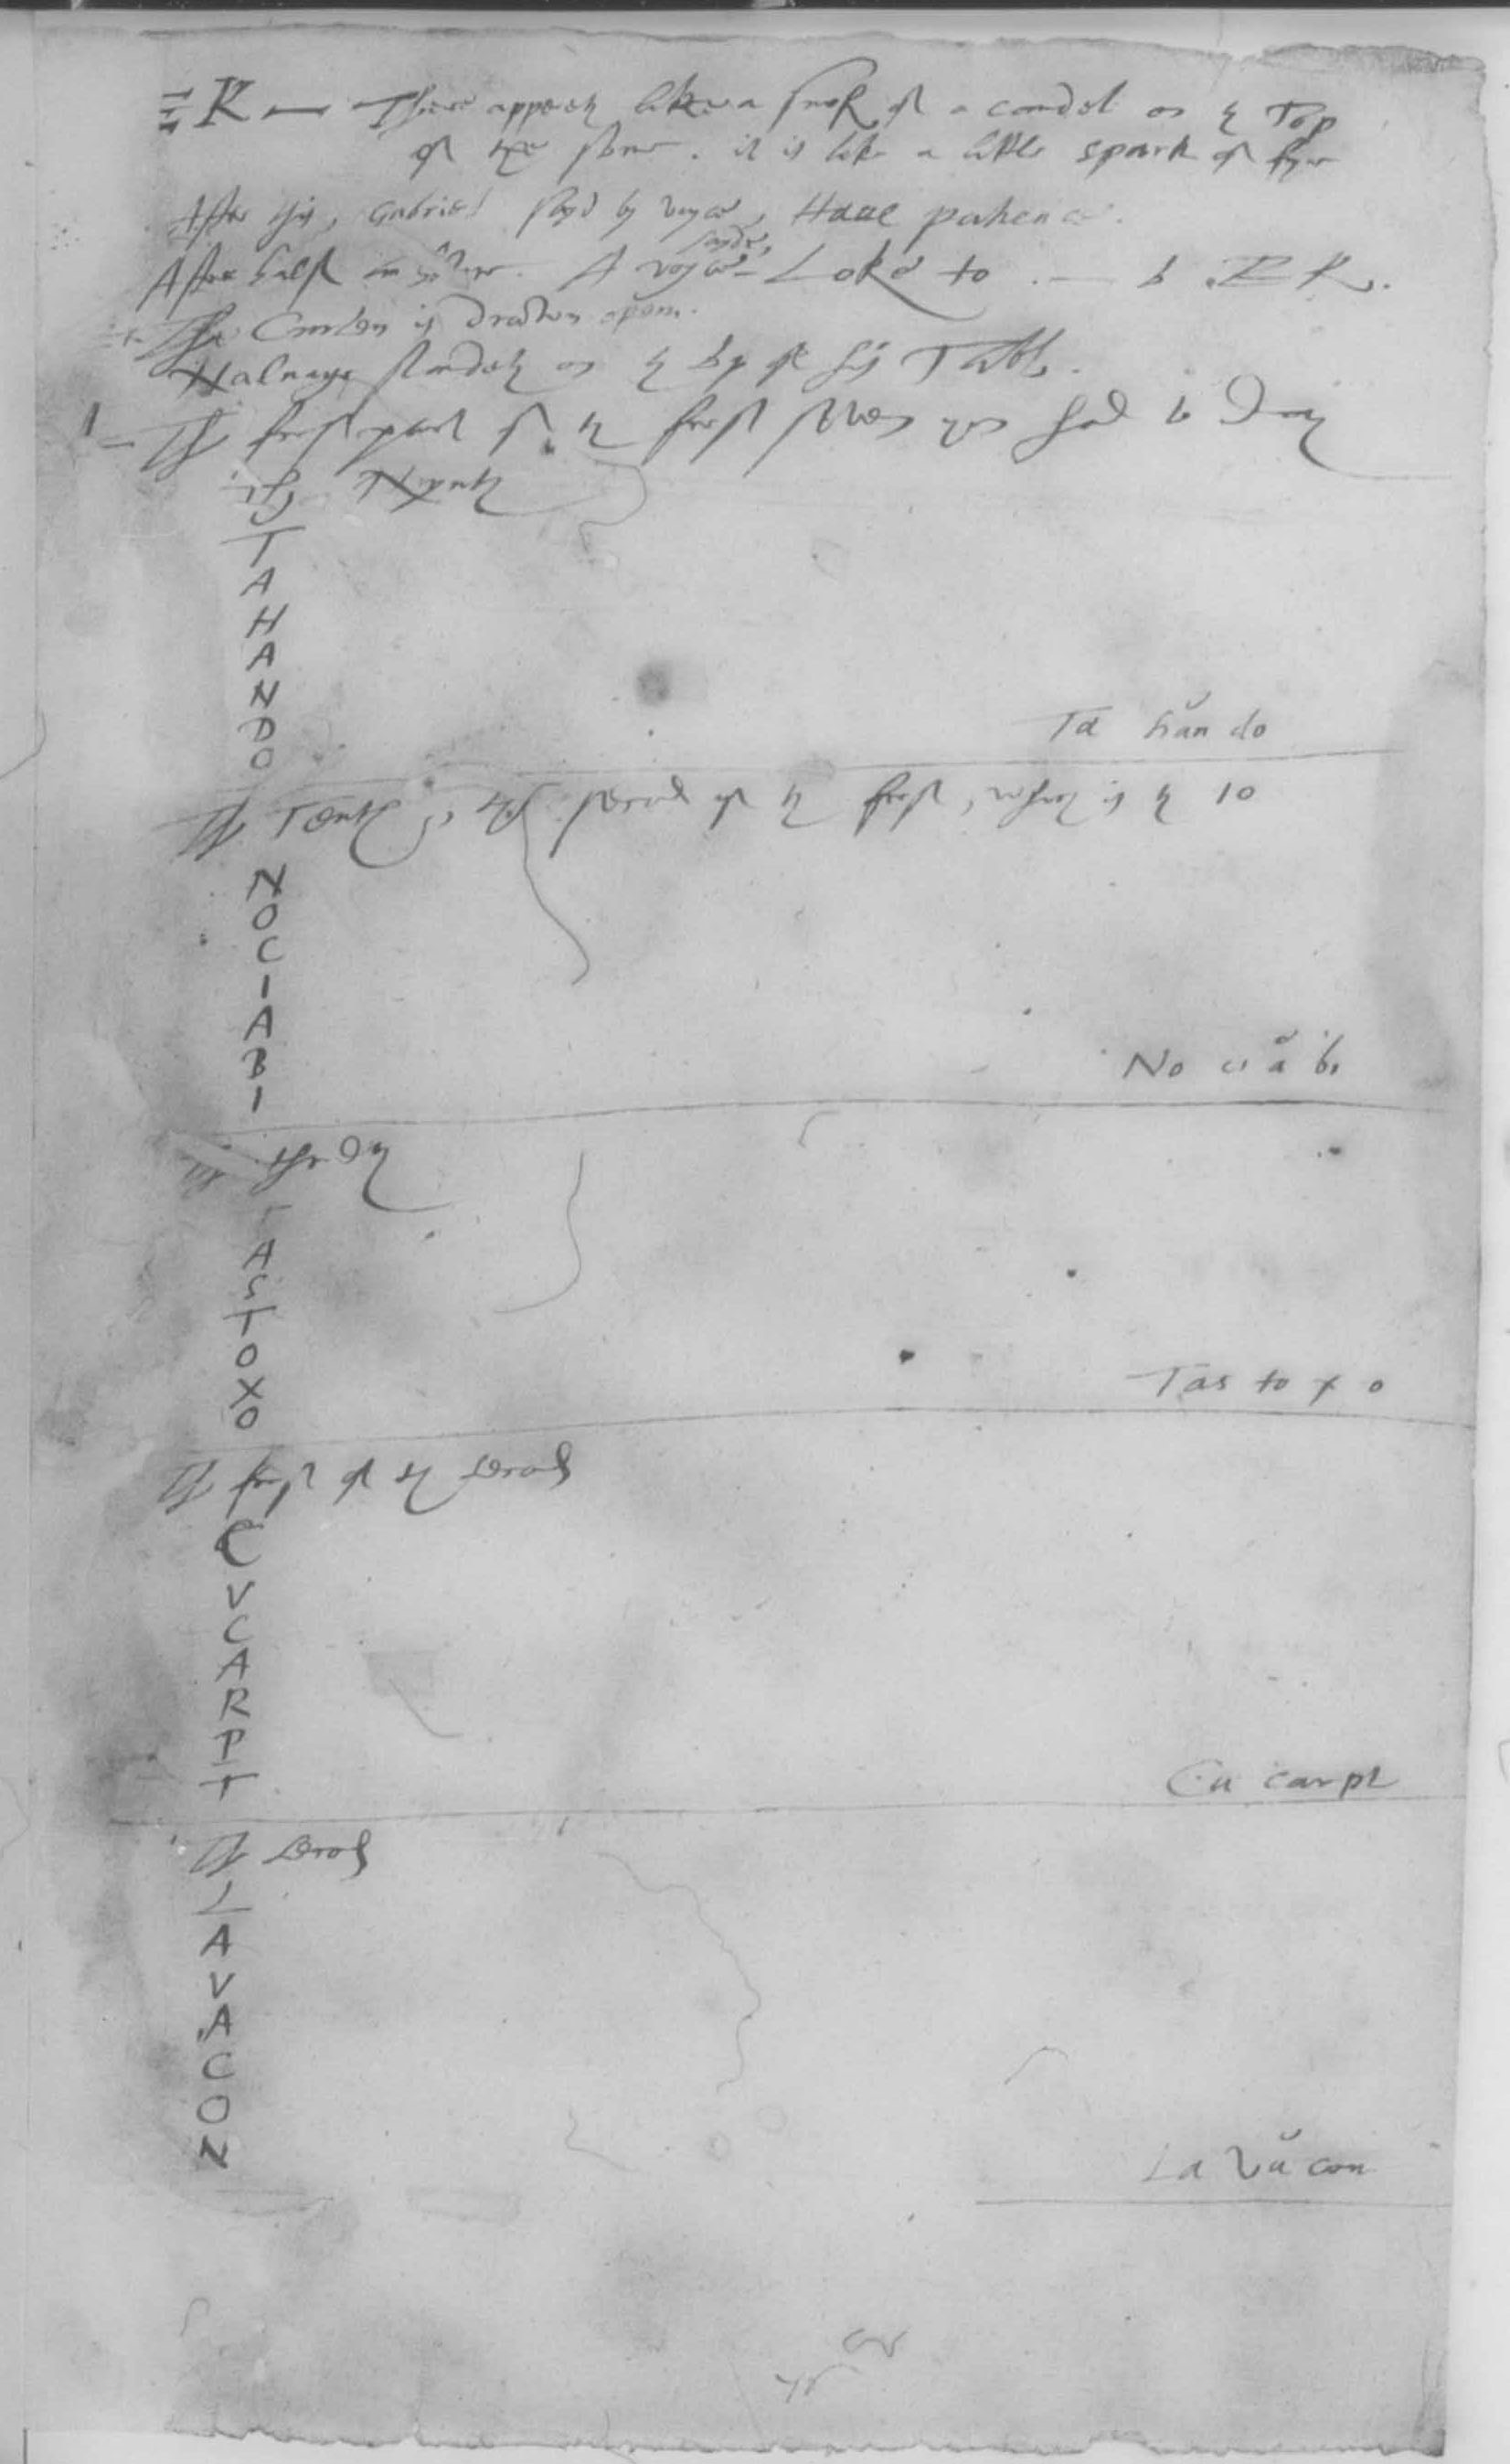 EK — There appereth like a snuf of a candel on the Top
of the stone. it is like a little spark of fyre
After this, Gabriel sayd by voyce, Haue patience.
After half an howre. A voyce sayde, — Loke to . — to .EK.
The Curten is drawen open.
Nalvage standeth on the top of his Table.
1 — The first part of the first seven you had to Day
the
T
A
H
A
N
D
O
Ta hăn do
The Tenth, the second of the first, which is the 10
N
O
C
I
A
B
I
No ci ă bi
The thirdth
T
A
S
T
O
X
O
Tas to x o
The first of the
C
V
C
A
R
P
T
Cu carpt
The
L
A
V
A
C
O
N
La vă con